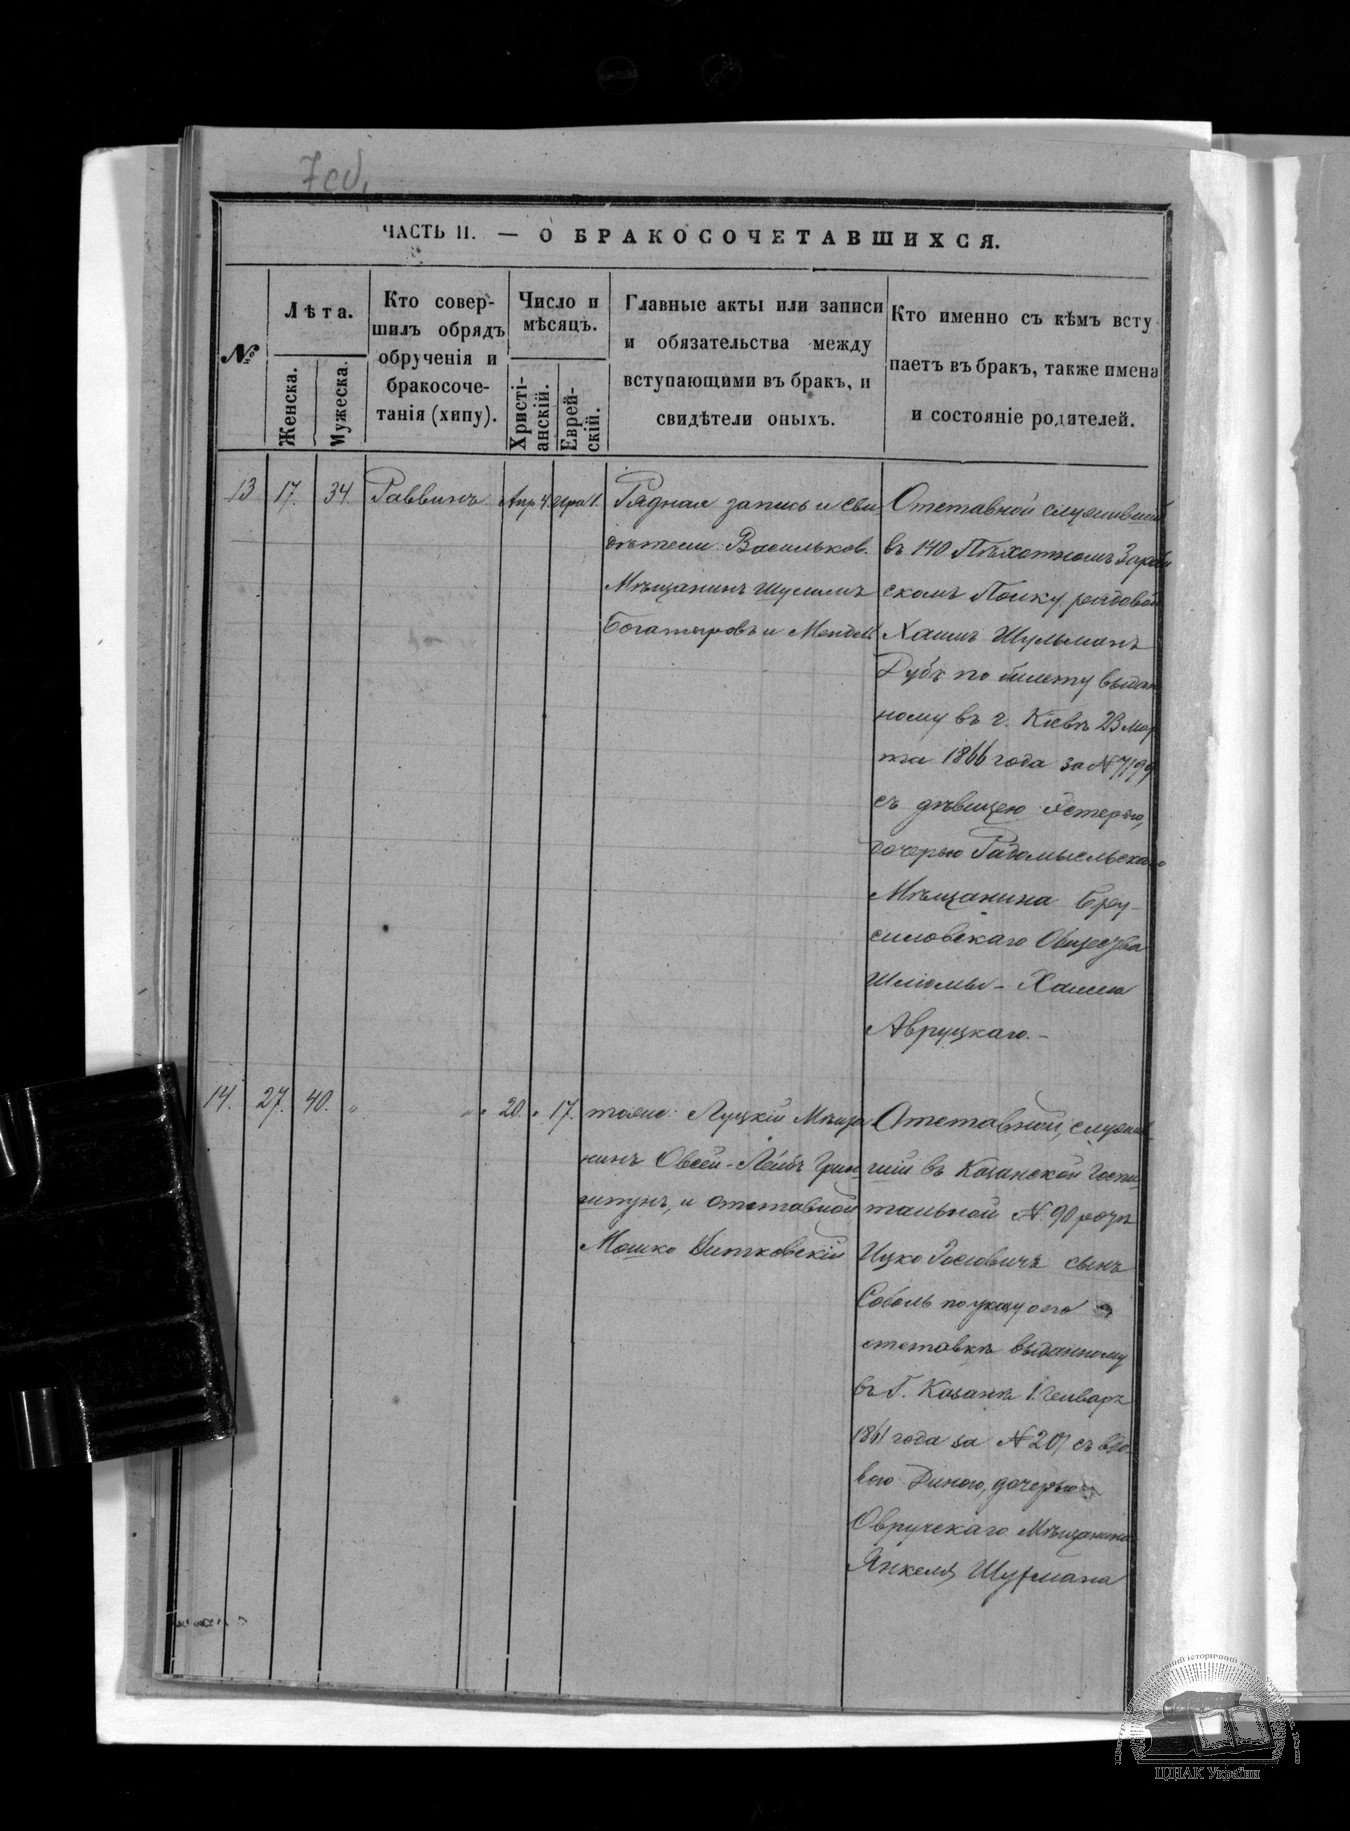 7 об.
ЧАСТЬ II. — О БРАКОСОЧЕТАВШИХСЯ.
№
Лѣта.
Женска.
Мужеска.
Кто совер-
шилъ обрядъ
обрученія и
бракосоче-
танія (хипу).
Число и
мѣсяцъ.
Христі-
анскій.
Еврей-
скій.
Главные акты или записи
и обязательства между
вступающими въ бракъ, и
свидѣтели оныхъ.
Кто именно съ кѣмъ всту
паетъ въ бракъ, также имена
и состояніе родителей.
13
17.
34
Раввинъ
Апр 4.
1.
Рядная запись и сви
дѣтели: Васильков.
Мѣщанинъ Шулимъ
Богатыровъ и Мендель
Отставной служившій
въ 140 Пѣхотномъ Зарай
скомъ Полку рядовой
Хаимъ Шульманъ
Дубъ по билету выдан
ному въ г. Кіевѣ 23 мар
та 1866 года за № 7199
съ дѣвицею Эстерою,
дочерью Радомысльскаго
Мѣщанина Бру-
силовскаго Общества
Шліомы - Хаима
Авруцкаго. -
14.
27.
40.
"
" "
20.
"
17.
тоже: Луцкій Мѣща
нинъ Овсей - Лейбъ
и отставной
Мошко Витковскій
Отставной, служив
шій въ Казанской Госпи
тальной № 90 ротѣ
Ицко Іосіовичъ сынъ
Соболь по указу о его
отставкѣ выданному
въ Г. Казанѣ 1. Генваря
1861 года за № 20, съ вдо
вою Диною, дочерью
Овручскаго Мѣщанина
Янкеля Шуфмана
ЦДІАК України